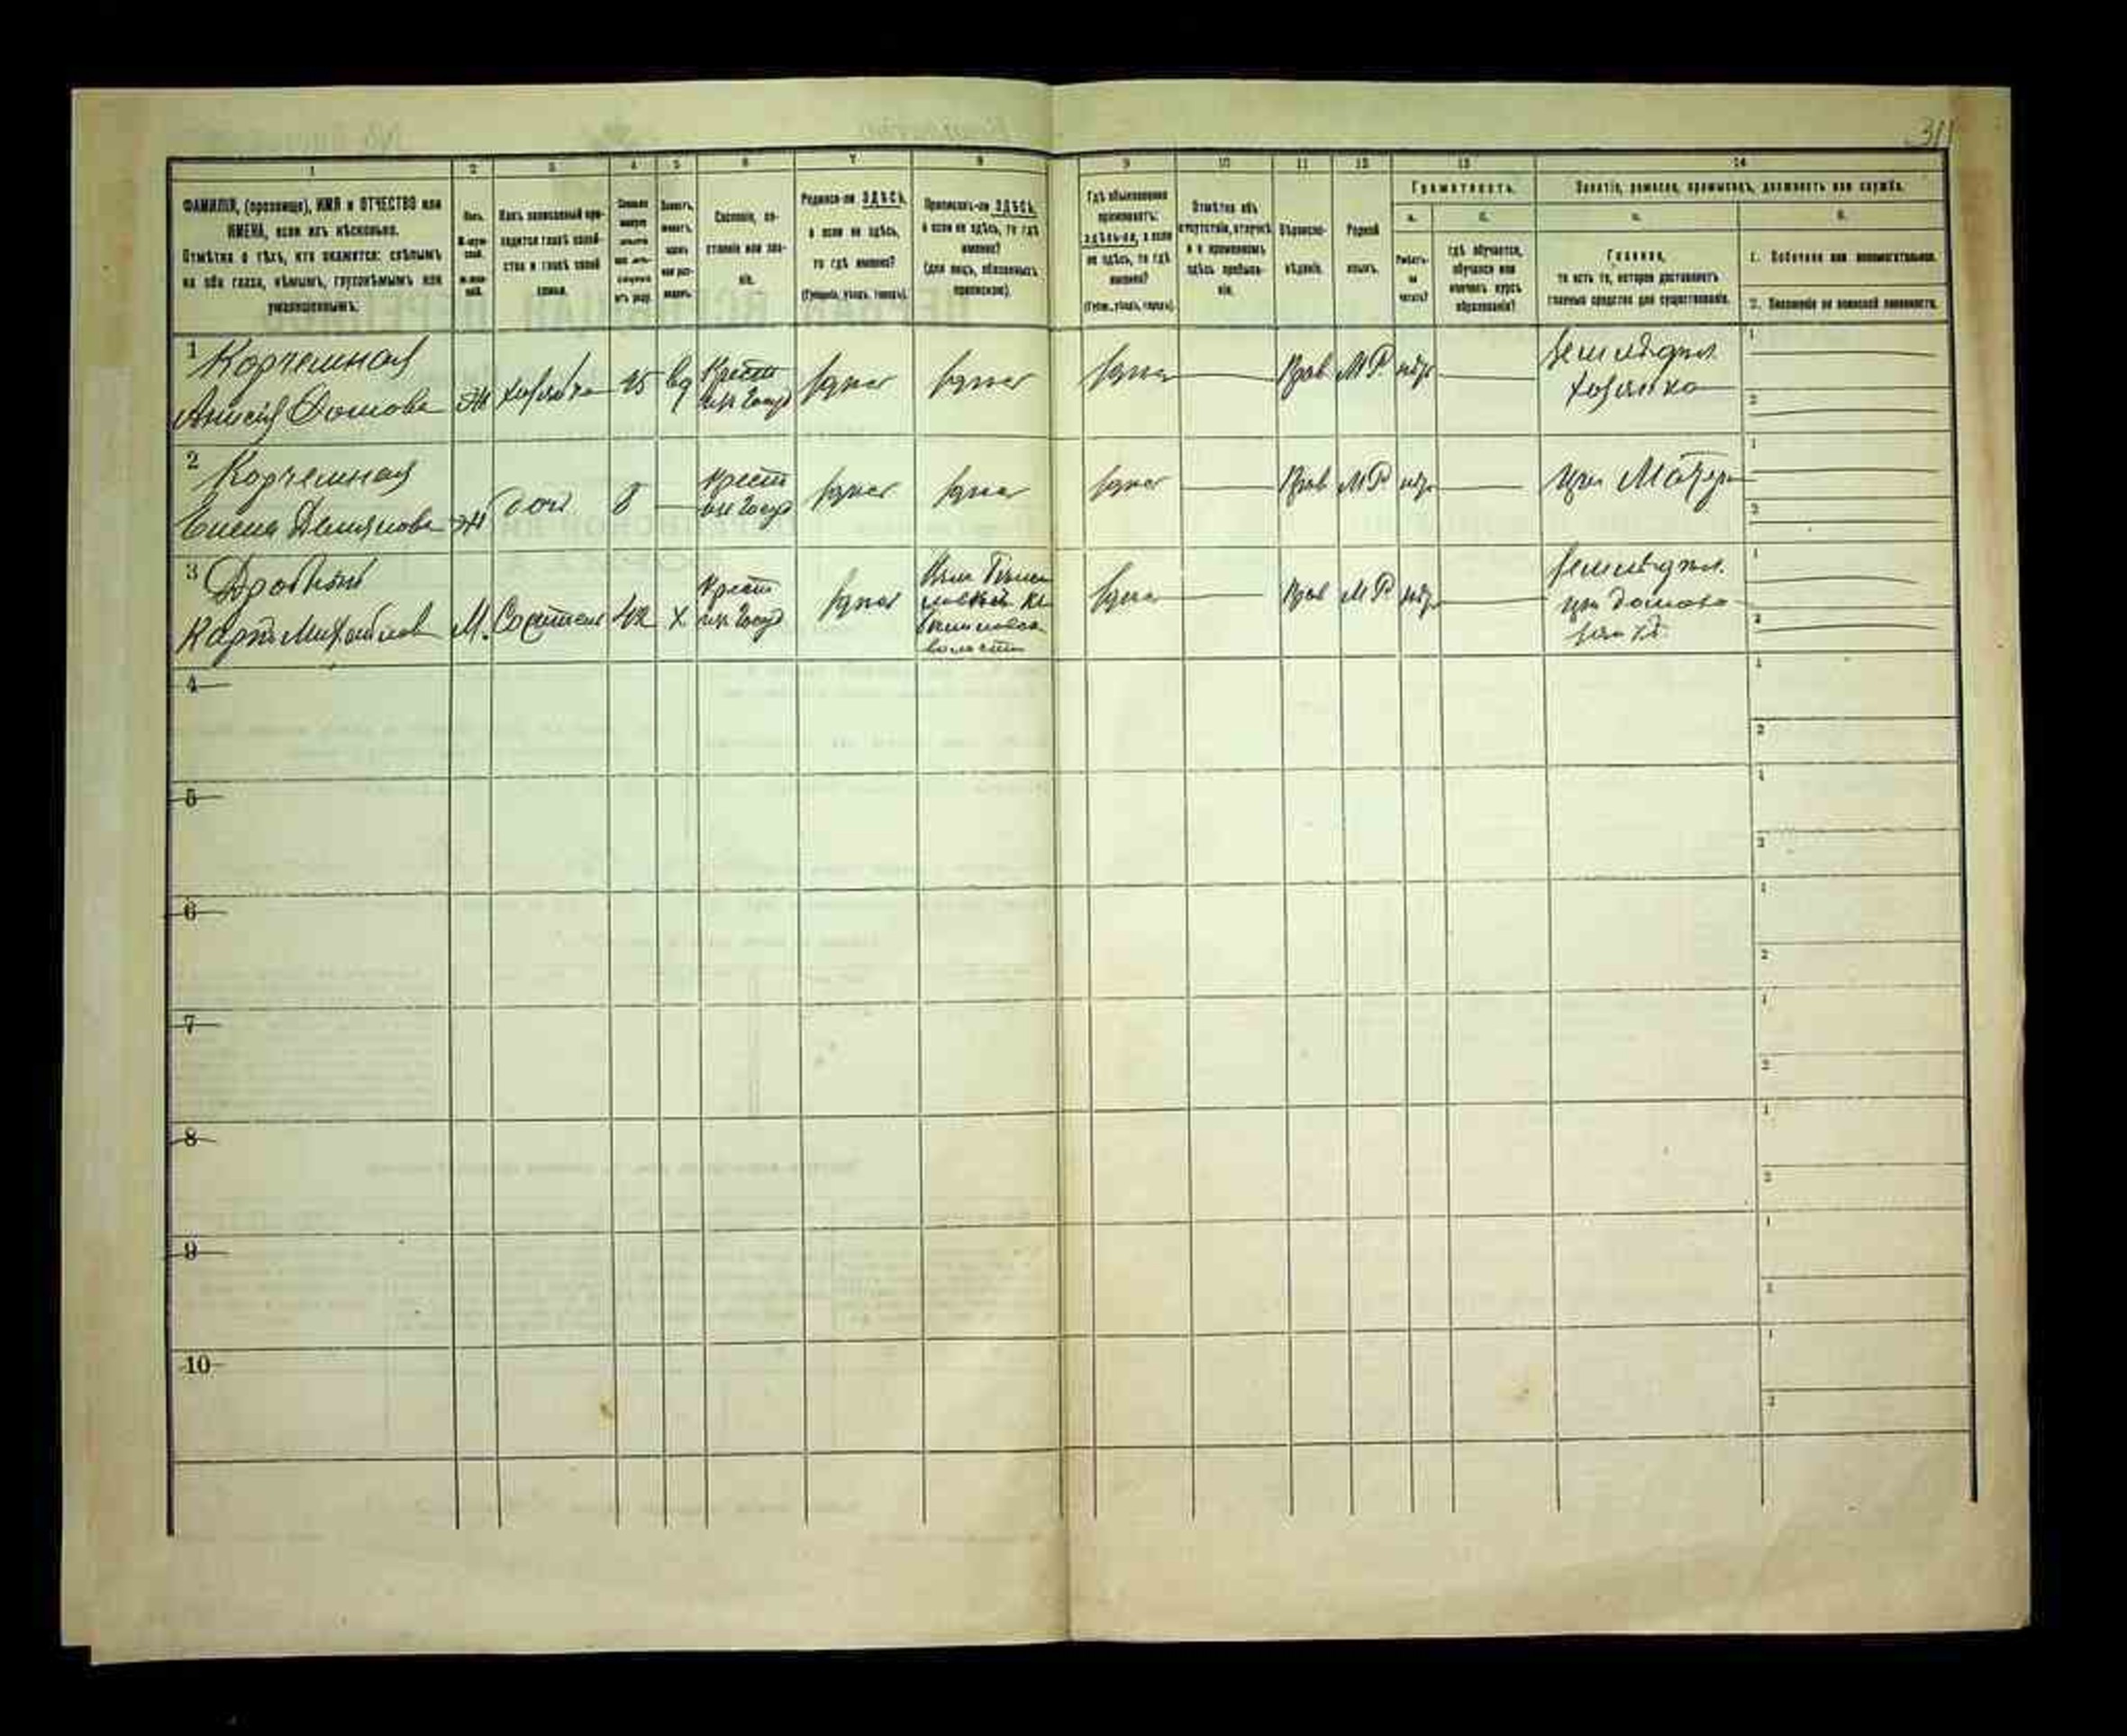 311
1 2 3 4 5 6 7 8 9 10 11 12 13 14
ФАМИЛІЯ, (прозвище), ИМЯ и ОТЧЕСТВО или
ИМЕНА, если ихъ нѣсколько.
Отмѣтка о тѣхъ, кто окажется: слѣпымъ
на оба глаза, нѣмымъ, глухонѣмымъ или
умалишеннымъ.
Полъ.
Какъ записанный при-
ходится главѣ хозяй-
ства и главѣ своей
семьи.
Сословіе, со-
стояніе или зва-
ніе.
Родился-ли ЗДѢСЬ,
а если не здѣсь,
то гдѣ именно?
(Губернія, уѣздъ, городъ).
Приписанъ-ли ЗДѢСЬ,
а если не здѣсь, то гдѣ
именно?
(для лицъ, обязанныхъ
припискою).
Гдѣ обыкновенно
проживаетъ:
здѣсь-ли, а если
не здѣсь, то гдѣ
именно?
(Губерн., уѣздъ, городъ).
Отмѣтка объ
отсутствіи, отлучкѣ
и о временномъ
здѣсь пребыва-
ніи.
Вѣроиспо-
вѣданіе.
Родной
языкъ.
Грамотность.
а.
б.
Умѣетъ-
ли
читать?
гдѣ обучается,
обучался или
кончилъ курсъ
образованія?
Занятіе, ремесло, промыселъ, должность или служба.
а.
б.
Главное,
то есть то, которое доставляетъ
главныя средства для существованія.
1. Побочное или вспомогательное.
2. Положеніе по воинской повинности.
1 Корчемная
Анисія Фомова
Ж хозяйка 45 вд Крест
из Госуд
здѣсь здѣсь здѣсь Прав МР нѣт
земледѣл.
хозяйка
1
2
2 Корчемная
Елена Демянова
Ж доч 8 Крест
из Госуд
здѣсь здѣсь здѣсь Прав МР нѣт при Матери
1
2
3
Карп Михайлов
М. 42 Х Крест
из Госуд
здѣсь
волости
здѣсь Прав МР нѣт
земледѣл.
при
1
2
4
1
2
5
1
2
6
1
2
7
1
2
8
1
2
9
1
2
10
1
2